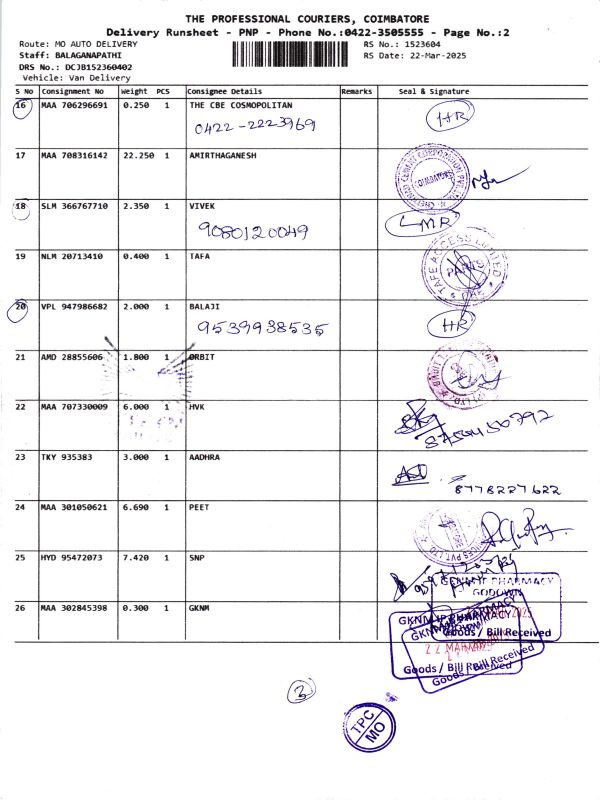 THE PROFESSIONAL COURIERS, COIMBATORE
Delivery Runsheet - PNP - Phone No.:0422-3505555 - Page No.:2
Route: MO AUTO DELIVERY RS No.: 1523604
Staff: BALAGANAPATHI RS Date: 22-Mar-2025
DRS No.: DCJB152360402
Vehicle: Van Delivery
S No Consignment No Weight PCS Consignee Details Remarks Seal & Signature
16 MAA 706296691 0.250 1 THE CBE COSMOPOLITAN HR
0422-2223969
17 MAA 708316142 22.250 1 AMIRTHAGANESH
COIMBATORE
18 SLM 366767710 2.350 1 VIVEK LMR
9080120049
19 NLM 20713410 0.400 1 TAFA
TAFE ACCESS LIMITED
PARTS
20 VPL 947986682 2.000 1 BALAJI HR
9539938535
21 AMD 28855606 1.800 1 ORBIT
22 MAA 707330009 6.000 1 HVK
23 TKY 935383 3.000 1 AADHRA
8778227622
24 MAA 301050621 6.690 1 PEET
25 HYD 95472073 7.420 1 SNP
GKNM IP PHARMACY
GODOWN
26 MAA 302845398 0.300 1 GKNM
GKNM IP PHARMACY
Goods / Bill Received
22 MAR
Goods / Bill Received
Goods / Bill Received
3
TPC
MO